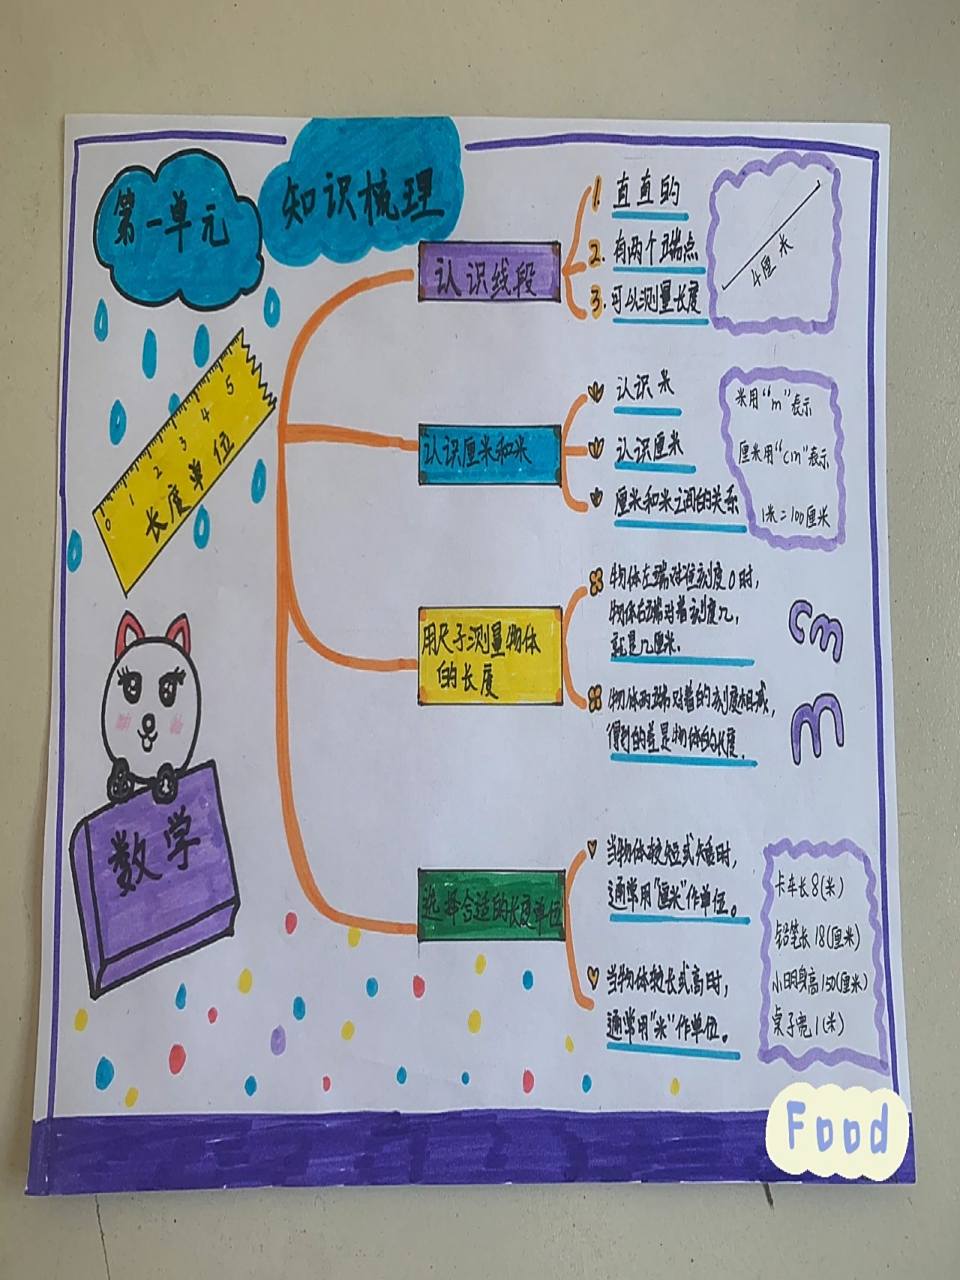 第一单元
知识梳理
0 1 2 3 4 5
长度单位
数学
认识线段
1. 直直的
2. 有两个端点
3. 可以测量长度
4厘米
认识厘米和米
认识米
认识厘米
厘米和米之间的关系
米用“m”表示
厘米用“cm”表示
1米=100厘米
用尺子测量物体
的长度
物体左端对住刻度0时,
物体右端对着刻度几,
就是几厘米.
物体两端对着的刻度相减,
得到的差是物体的长度.
cm
m
选择合适的长度单位
当物体较短或矮时,
通常用“厘米”作单位。
当物体较长或高时,
通常用“米”作单位。
卡车长8(米)
铅笔长18(厘米)
小明身高150(厘米)
桌子宽1(米)
Food